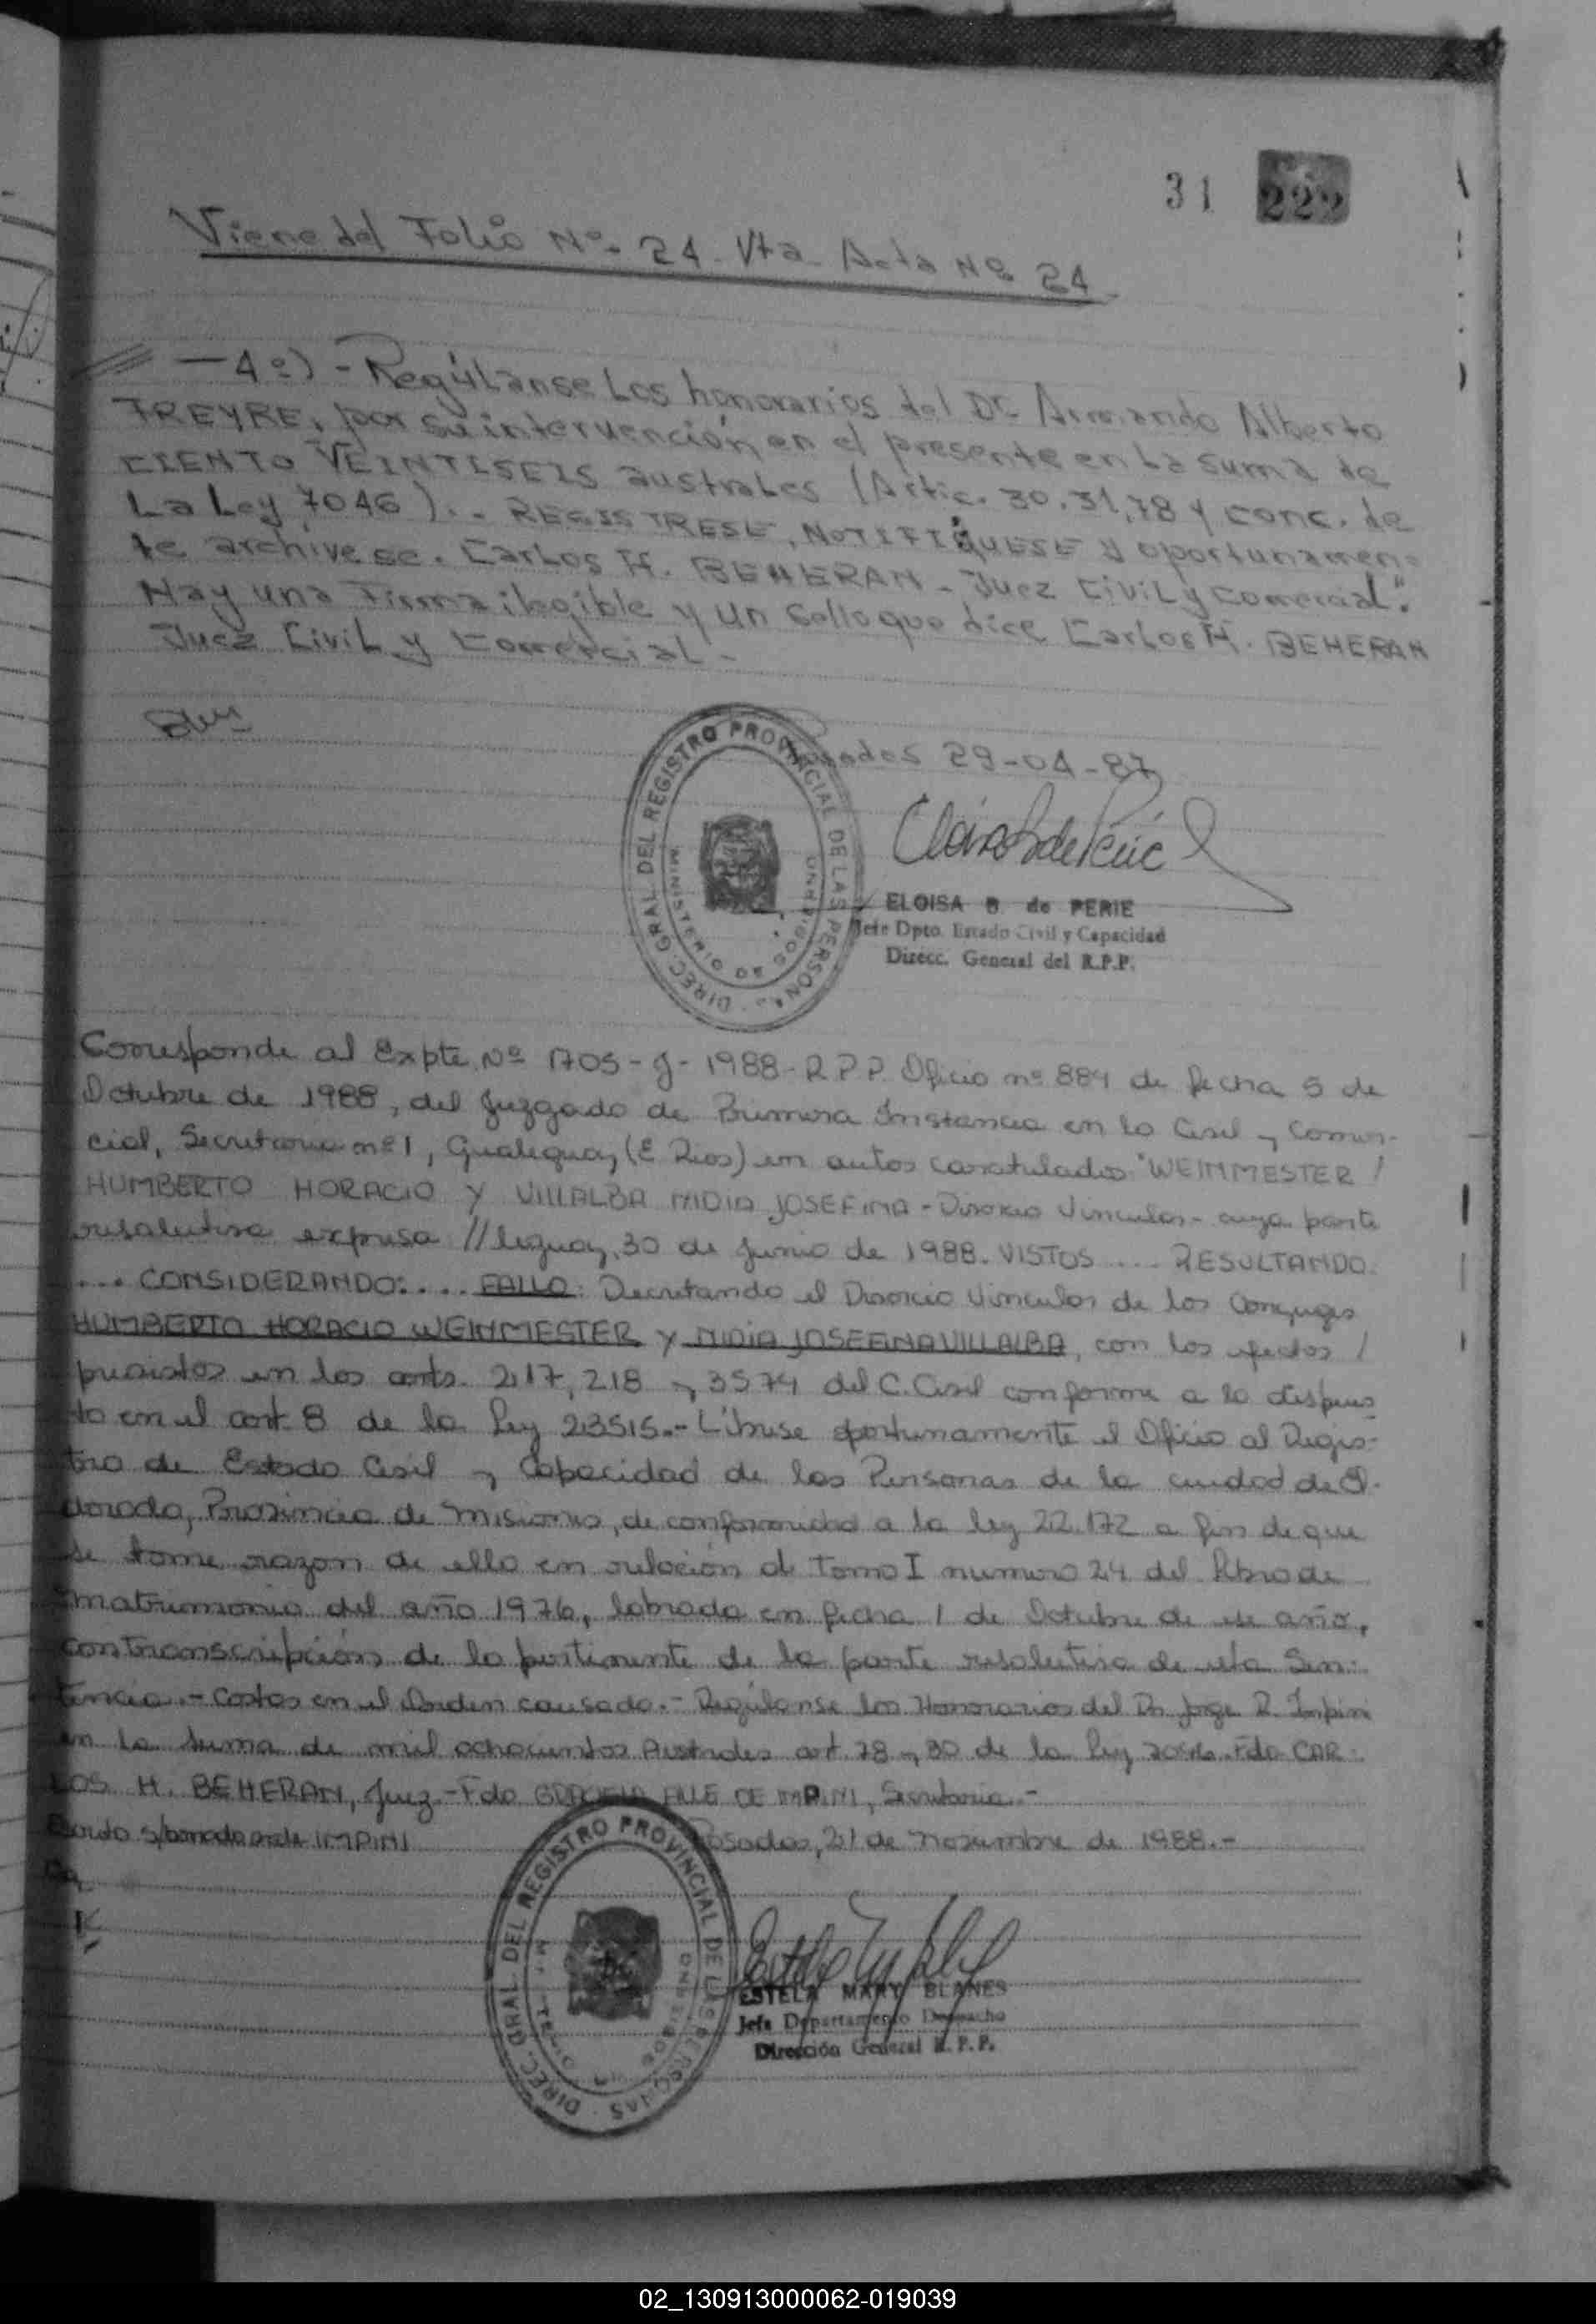 31 222
Viene del Folio Nº- 24 - Vta - Acta Nº 24
— 4º) - Regúlanse Los honorarios del Dr. Armando Alberto
FREYRE, por su intervención en el presente en La suma de
CIENTO VEINTISEIS australes (Artic. 30, 31, 78 y conc. de
La Ley 7046).- REGISTRESE, NOTIFIQUESE y oportunamen-
te archivese. Carlos H. BEHERAN - Juez Civil y Comercial".
Hay una Firma ilegible y un Sello que dice Carlos H. BEHERAN
Juez Civil y Comercial -
Posadas 29-04-87
DIREC. GRAL. DEL REGISTRO PROVINCIAL DE LAS PERSONAS
MINISTERIO DE GOBIERNO
ELOISA B. de PERIE
Jefe Dpto. Estado Civil y Capacidad
Direcc. General del R.P.P.
Corresponde al Expte. Nº 1705 - J - 1988 - R.P.P. Oficio nº 884 de fecha 5 de
Octubre de 1988, del Juzgado de Primera Instancia en lo Civil y Comer-
cial, Secretaria nº 1, Gualeguay (E. Rios) en autos caratulados "WEINMESTER /
HUMBERTO HORACIO Y VILLALBA NIDIA JOSEFINA - Divorcio Vincular - cuya parte
resolutiva expresa //leguay, 30 de Junio de 1988. VISTOS .... RESULTANDO.
.... CONSIDERANDO: .... FALLO: Decretando el Divorcio Vincular de los Conyuges
HUMBERTO HORACIO WEINMESTER Y NIDIA JOSEFINA VILLALBA, con los efectos /
previstos en los arts. 217, 218 y 3574 del C. Civil conforme a lo dispues
to en el art. 8 de la Ley 23515.- Líbrese oportunamente el Oficio al Regis-
tro de Estado Civil y Capacidad de las Personas de la ciudad de El-
dorado, Provincia de Misiones, de conformidad a la ley 22.172 a fin de que
se tome razon de ello en relación al Tomo I numero 24 del libro de
matrimonio del año 1976, labrada en fecha 1 de Octubre de ese año,
con transcripción de lo pertinente de la parte resolutiva de esta Sen-
tencia.- Costas en el Orden causado.- Regúlanse los Honorarios del Dr. Jorge R. Impini
en la suma de mil ochocientos Australes art. 78 y 30 de la ley 7046. Fdo CAR-
LOS H. BEHERAN, Juez - Fdo GRACIELA DE IMPINI, Secretaria.-
IMPINI Posadas, 21 de Noviembre de 1988.-
DIREC. GRAL. DEL REGISTRO PROVINCIAL DE LAS PERSONAS
ESTELA MARY BLANES
Jefa Departamento Despacho
Dirección General R.P.P.
02_130913000062-019039